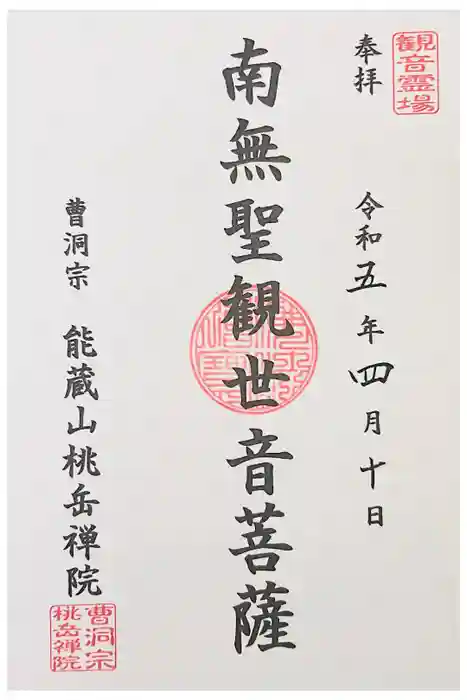 観音霊場
奉拝
令和五年四月十日
南無聖観世音菩薩
曹洞宗 能蔵山桃岳禅院
曹洞宗
桃岳禅院